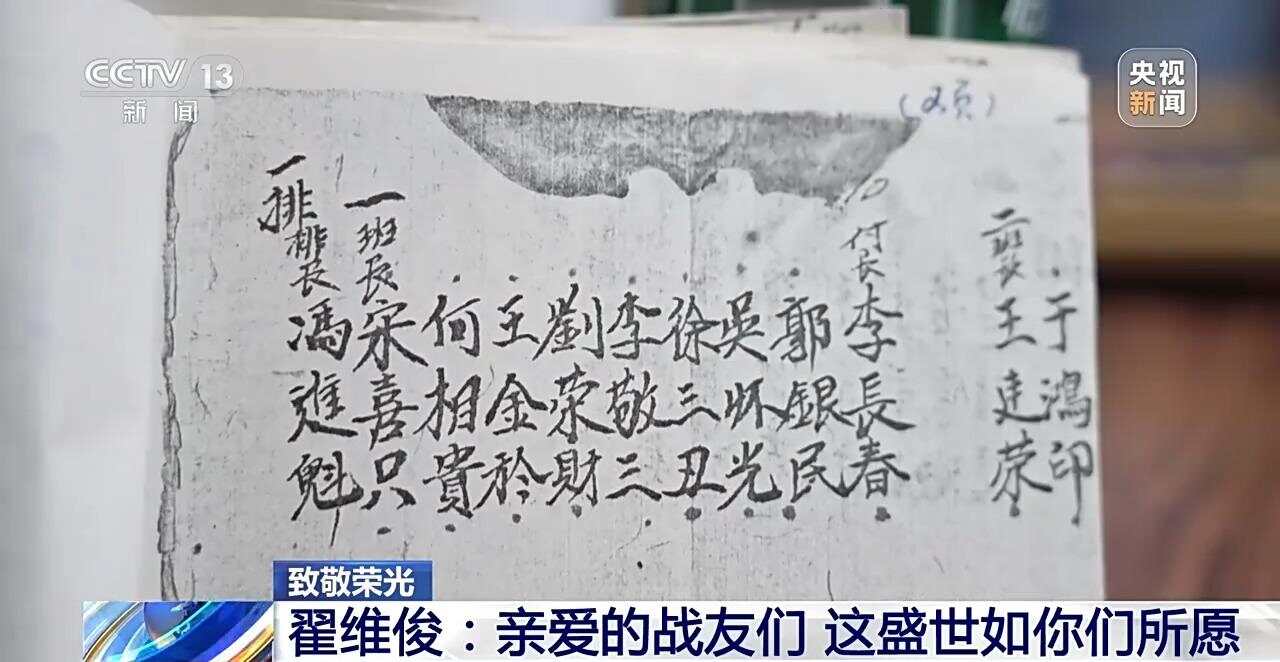 CCTV 13
新闻
央视
新闻
(双页)
一排
排长
馮進魁
一班长
宋喜只
何相貴
王金矜
劉荣財
李敬三
徐三丑
吳怀光
郭銀民
付长
李長春
二班长
王建荣
于鴻印
致敬荣光
翟维俊：亲爱的战友们 这盛世如你们所愿